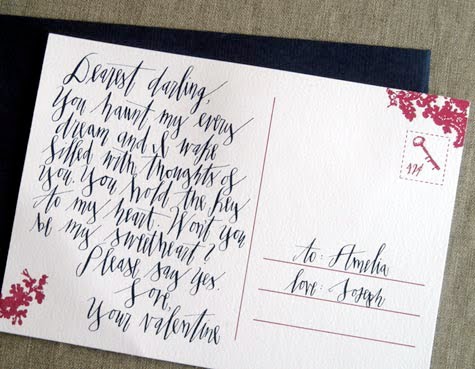 Dearest darling,
You haunt my every
dream and I wake
filled with thoughts of
you. You hold the key
to my heart. Won't you
be my sweetheart?
Please say yes.
Love,
Your valentine
42¢
to: Amelia
love: Joseph